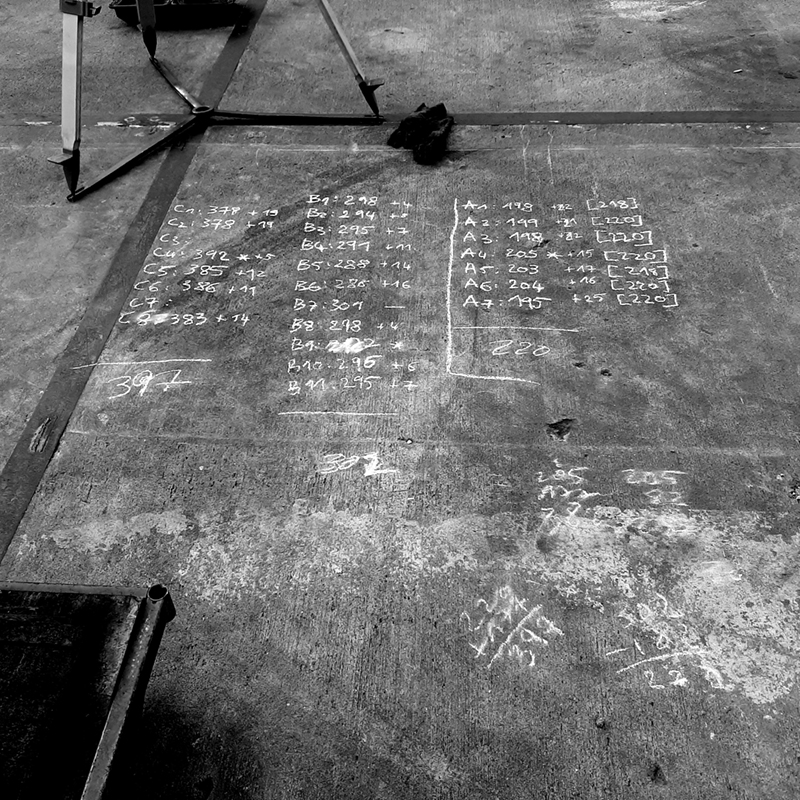 C1: 378 + 19
C2: 378 + 19
C3:
C4: 392 * +5
C5: 385 + 12
C6: 386 + 11
C7:
C8: 383 + 14
397
B1: 298 + 4
B2: 294 + 8
B3: 295 + 7
B4: 291 + 11
B5: 288 + 14
B6: 286 + 16
B7: 301 —
B8: 298 + 4
B9: *
B10: 295 + 6
B11: 295 + 7
302
A1: 198 +22 [218]
A2: 199 +21 [220]
A3: 198 +22 [220]
A4: 205 * +15 [220]
A5: 203 +17 [218]
A6: 204 +16 [220]
A7: 195 +25 [220]
220
205
205